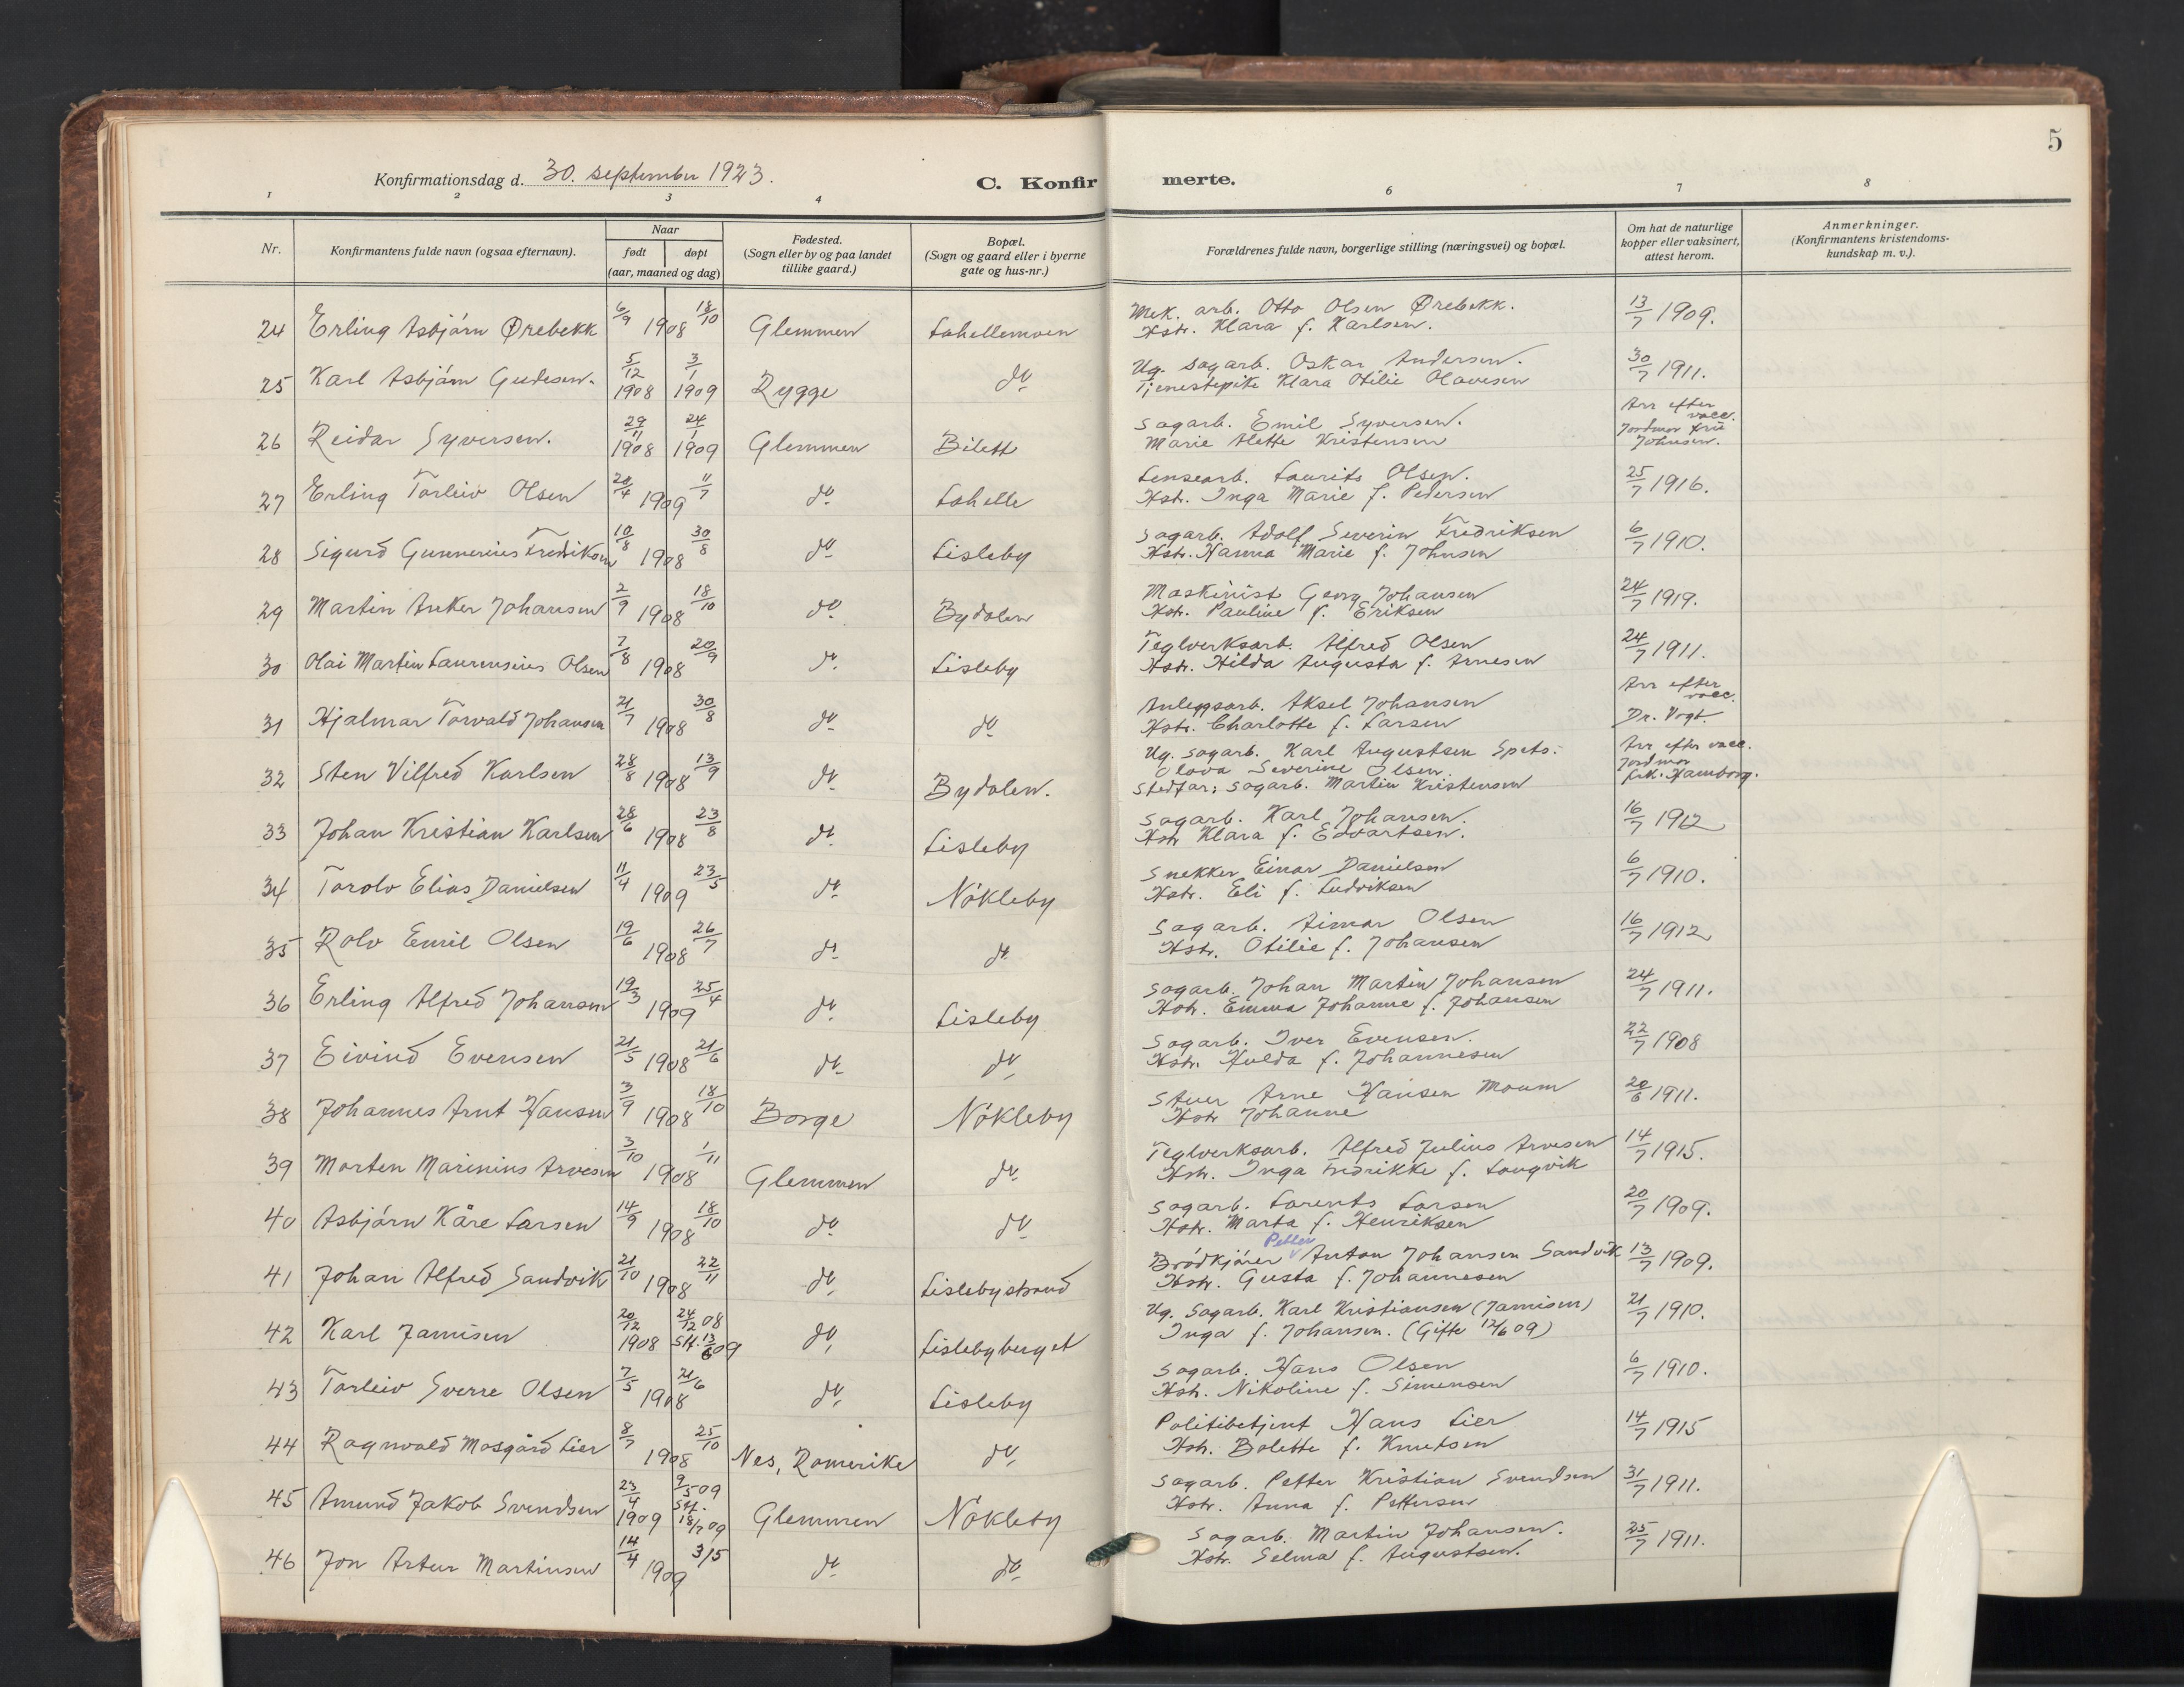 5
Konfirmationsdag d. 30. september 1923.
C. Konfir merte.
1 2 3 4 6 7 8
Nr.
Konfirmantens fulde navn (ogsaa efternavn).
Naar
født
døpt
(aar, maaned og dag)
Fødested.
(Sogn eller by og paa landet
tillike gaard.)
Bopæl.
(Sogn og gaard eller i byerne
gate og hus-nr.)
Forældrenes fulde navn, borgerlige stilling (næringsvei) og bopæl.
Om hat de naturlige
kopper eller vaksinert,
attest herom.
Anmerkninger.
(Konfirmantens kristendoms-
kundskap m. v.).
24 Erling Asbjörn Ørebekk 6/9 1908 18/10 Glemmen Lahellemoen
Mek. arb. Otto Olsen Ørebekk.
Hstr. Klara f. Karlsen.
13/7 1909.
25 Karl Asbjörn Gudesen. 5/12 1908 3/1 1909 Rygge do
Ug. sagarb. Oskar Andersen.
Tjenestepike Klara Otilie Olavesen
30/7 1911.
26 Reidar Syversen. 29/11 1908 24/1 1909 Glemmen Bilett
Sagarb. Emil Syversen.
Marie Alette Kristensen
Arr efter
vacc.
Jordmor frü
Johnsen.
27 Erling Torleiv Olsen 20/4 1909 11/7 do Lahelle
Lensearb. Laurits Olsen.
Hstr. Inga Marie f. Pedersen
25/7 1916.
28 Sigurd Gunnerius Fredriksen 10/8 1908 30/8 do Lisleby
Sagarb. Adolf Severin Fredriksen
Hstr. Hanna Marie f. Johnsen
6/7 1910.
29 Martin Anker Johansen 2/9 1908 18/10 do Bydalen
Maskinist Georg Johansen
Hstr. Pauline f. Eriksen
24/7 1919.
30 Olai Martin Laurensius Olsen 7/8 1908 20/9 do Lisleby
Teglverksarb. Alfred Olsen
Hstr. Hilda Augusta f. Arnesen
24/7 1911.
31 Hjalmar Torvald Johansen 21/7 1908 30/8 do do
Anleggsarb. Aksel Johansen
Hstr. Charlotte f. Larsen
Arr efter
vacc.
Dr. Vogt.
32 Sten Vilfred Karlsen 28/8 1908 13/9 do Bydalen.
Ug. sagarb. Karl Augustsen Spets.
Olava Severine Olsen.
Stedfar: sagarb. Martin Kristensen
Arr efter vacc.
Jordmor
frk. Hamborg.
33 Johan Kristian Karlsen 28/6 1908 23/8 do Lisleby
Sagarb. Karl Johansen.
Hstr Klara f. Edvartsen.
16/7 1912
34 Torolv Elias Danielsen 11/4 1909 23/5 do Nökleby
Snekker Einar Danielsen
Hstr. Eli f. Ludviksen
6/7 1910.
35 Rolv Emil Olsen 19/6 1908 26/7 do do
Sagarb. Aimar Olsen
Hstr. Otilie f. Johansen
16/7 1912
36 Erling Alfred Johansen 19/3 1909 25/4 do Lisleby
Sagarb. Johan Martin Johansen
Hstr. Emma Johanne f. Johansen
24/7 1911.
37 Eivind Evensen 21/5 1908 21/6 do do
Sagarb. Iver Evensen.
Hstr. Hulda f. Johannesen
22/7 1908
38 Johannes Arnt Hansen 3/9 1908 18/10 Borge Nökleby
Stuer Arne Hansen Moum
Hstr Johanne
20/6 1911.
39 Morten Marinius Arvesen 3/10 1908 1/11 Glemmen do
Teglverksarb. Alfred Julius Arvesen
Hstr. Inga Fredrikke f. Langvik
14/7 1915.
40 Asbjörn Kåre Larsen 14/9 1908 18/10 do do
Sagarb. Lorents Larsen
Hstr. Marta f. Henriksen
20/7 1909.
41 Johan Alfred Sandvik 21/10 1908 22/11 do Lislebystrand
Petter
Brödkjörer Anton Johansen Sandvik
Hstr. Gusta f. Johannesen
13/7 1909.
42 Karl Jamisen 20/12 1908 24/12 08 Stf. 13/6 09 do Lislebyberget
Ug. Sagarb. Karl Kristiansen (Jamisen)
Inga f. Johansen. (Gifte 12/6 09)
21/7 1910.
43 Torleiv Sverre Olsen 7/5 1908 21/6 do Lisleby
Sagarb. Hans Olsen
Hstr. Nikoline f. Simensen
6/7 1910.
44 Ragnvald Mosgård Lier 8/7 1908 25/10 Nes, Romerike do
Politibetjent Hans Lier
Hstr. Bolette f. Knutsen
14/7 1915
45 Amund Jakob Svendsen 23/4 1909 9/5 09 Stf. 18/7 09 Glemmen Nökleby
Sagarb. Petter Kristian Svendsen
Hstr. Anna f. Pettersen
31/7 1911.
46 Jon Artur Martinsen 14/4 1909 3/5 do do
Sagarb. Martin Johansen.
Hstr. Selma f. Augustsen.
25/7 1911.